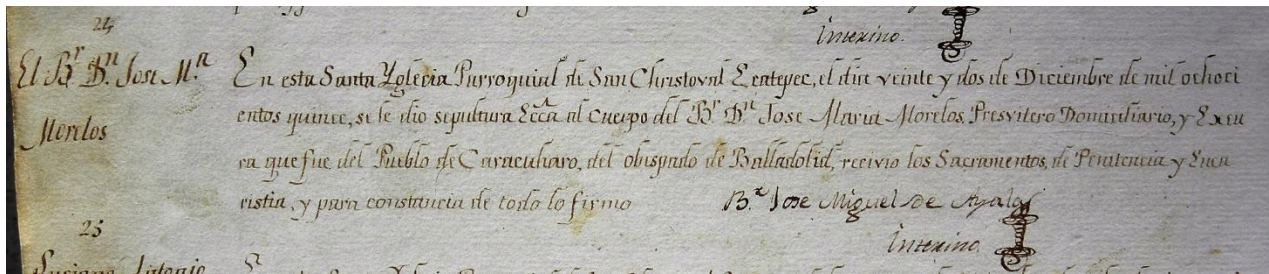 Interino.
24
El Br. Dn. Jose Ma.
Morelos
En esta Santa Yglecia Parroquial de San Christoval Ecatepec, el dia veinte y dos de Diciembre de mil ochoci
entos quince, se le dio sepultura Ecca. al Cuerpo del Br. Dn. Jose Maria Morelos, Presvitero Domiciliario, y Excu
ra que fue del Pueblo de Caracuharo, del obispado de Balladolid, recivio los Sacramentos, de Penitencia y Euca
ristia, y para constancia de todo lo firmo
Br. Jose Miguel de Ayala
Interino.
25
Luciano Antonio